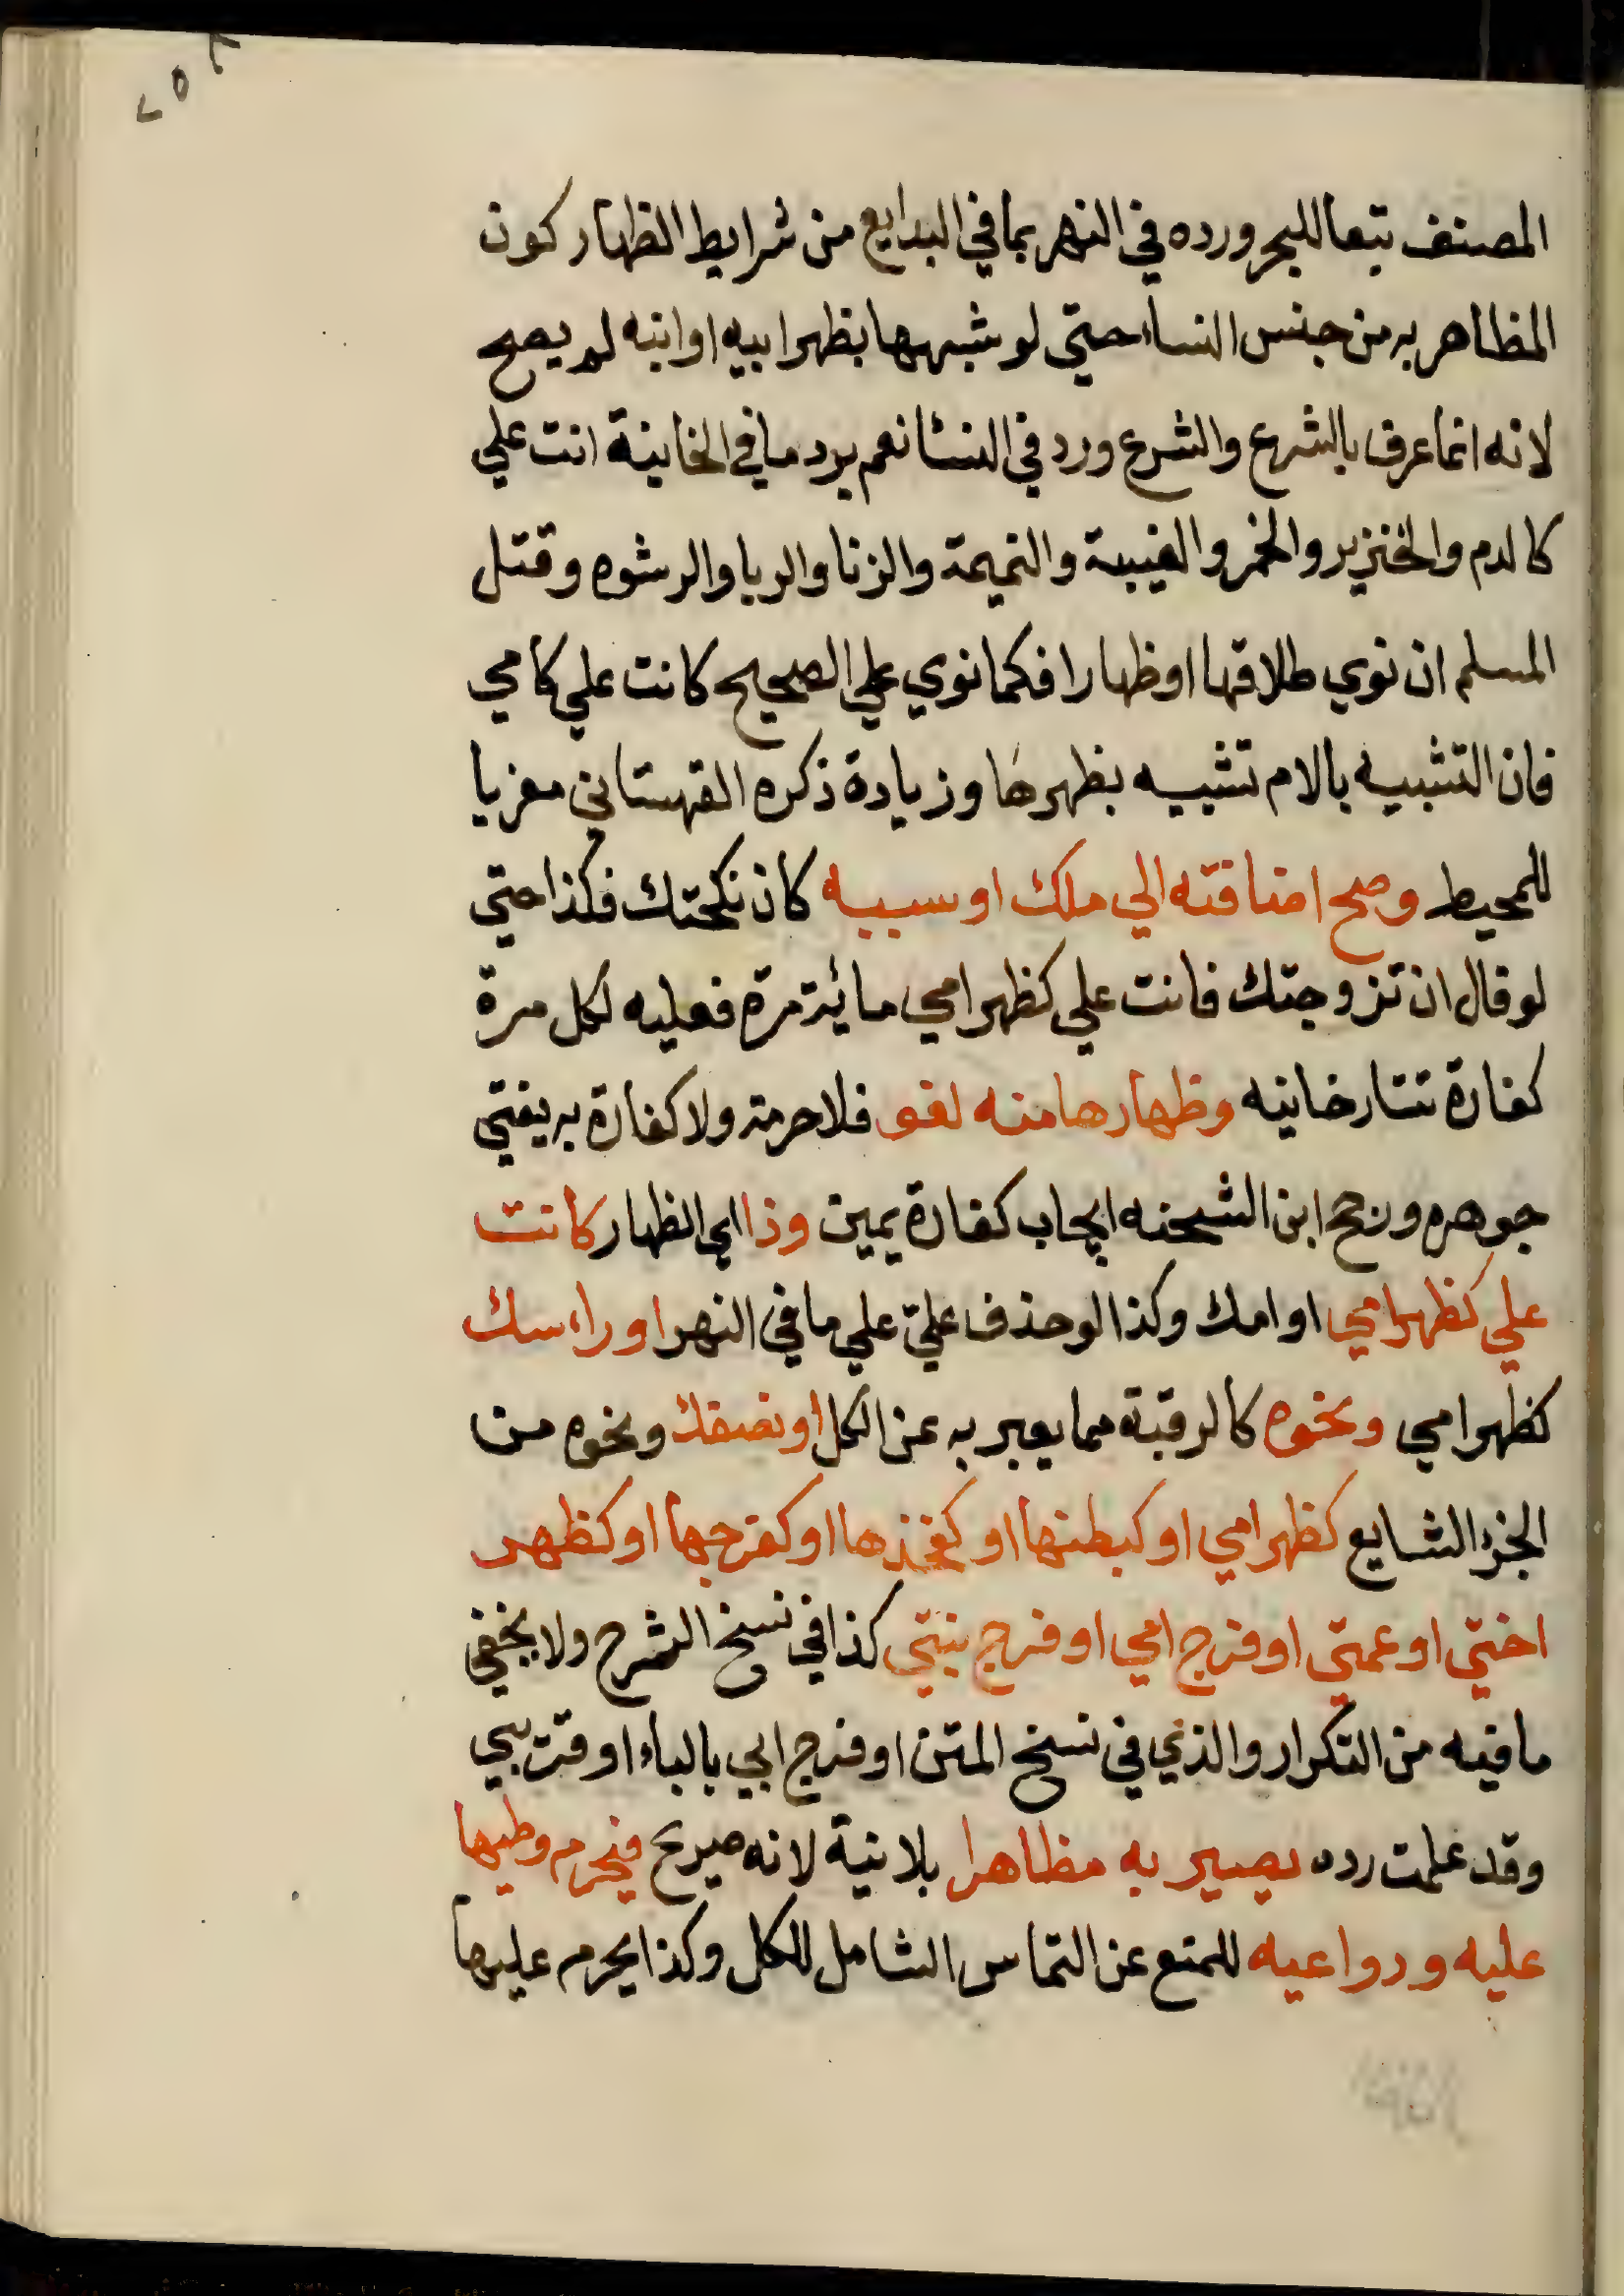 المصنف تبعا للبحر ورده في النهر بما في البدايع من شرايط الظهار كون
المظاهر به من جنس النساء حتي لو شبهها بظهر ابيه او ابنه لم يصح
لانه انما عرف بالشرع والشرع ورد في النسا نعم يرد ما في الخانية انت علي
كالدم والخنزير والخمر والغيبة والنميمة والزنا والربا والرشوه وقتل
المسلم ان نوي طلاقها او ظهارا فكما نوي علي الصحيح كانت علي كامي
فان التشبيه بالام تشبيه بظهرها وزيادة ذكره القهستاني معزيا
للمحيط وصح اضافته الي ملك او سببه كان نكحتك فكذا حتي
لو قال ان تزوجتك فانت علي كظهر امي مائة مرة فعليه لكل مرة
كفارة تتارخانيه وظهارها منه لغو فلا حرمة ولا كفارة به يفتي
جوهره ورجح ابن الشحنه ايجاب كفارة يمين وذا اي الظهار كانت
علي كظهر امي او امك وكذا لو حذف عليّ علي ما في النهر او راءسك
كظهر امي ونحوه كالرقبة مما يعبر به عن الكل او نصفك ونحوه من
الجزؤ الشايع كظهر امي او كبطنها او كفخذها او كفرجها او كظهر
اختي او عمتي او فرج امي او فرج بنتي كذا في نسخ الشرح ولا يخفي
ما فيه من التكرار والذي في نسخ المتن او فرج ابي بالباء او قريبي
وقد علمت رده يصير به مظاهرا بلا نية لانه صريح فيحرم وطيها
عليه ودواعيه للمنع عن التماس الشامل للكل وكذا يحرم عليها